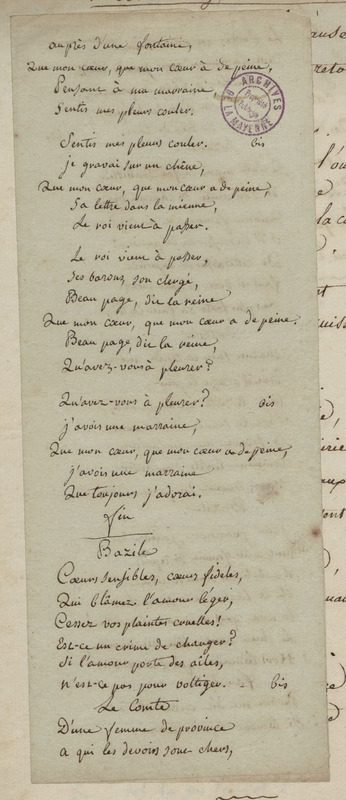 auprès d'une fontaine,
Que mon cœur, que mon cœur à de peine,
Pensant à ma marraine
Sentis mes pleurs couler.
Sentis mes pleurs couler. bis
je gravai sur un chêne,
Que mon cœur, que mon cœur a de peine,
Sa lettre dans la mienne,
Le roi vient à passer.
Le roi vient à passer,
Ses barons, son clergé,
Beau page, dit la reine
Que mon cœur, que mon cœur a de peine.
Beau page, dit la reine,
Qu'avez-vous à pleurer?
Qu'avez-vous à pleurer? bis
j'avois une marraine,
Que mon cœur, que mon cœur a de peine,
j'avois une marraine
Que toujours j'adorai.
fin
Bazile
Cœurs sensibles, cœurs fideles,
Qui blâmez l'amour léger,
Cessez vos plaintes cruelles!
Est-ce un crime de changer?
Si l'amour porte des aîles,
n'est-ce pas pour voltiger. - bis
Le Comte
D'une femme de province
a qui les devoirs sont chers,
ARCHIVES
DE LA MAYENNE